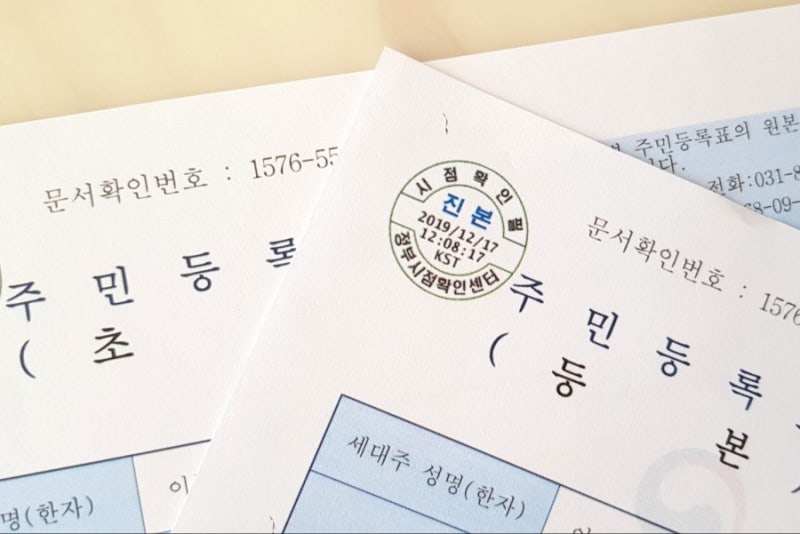 문서확인번호 : 1576-55
주 민 등 록
( 초
명(한자)
이
주민등록표의 원본
전화:031-8
68-09-
시점확인필
진본
2019/12/17
12:08:17
KST
정부시점확인센터
문서확인번호 : 1576
주 민 등 록
( 등 본 )
세대주 성명(한자)